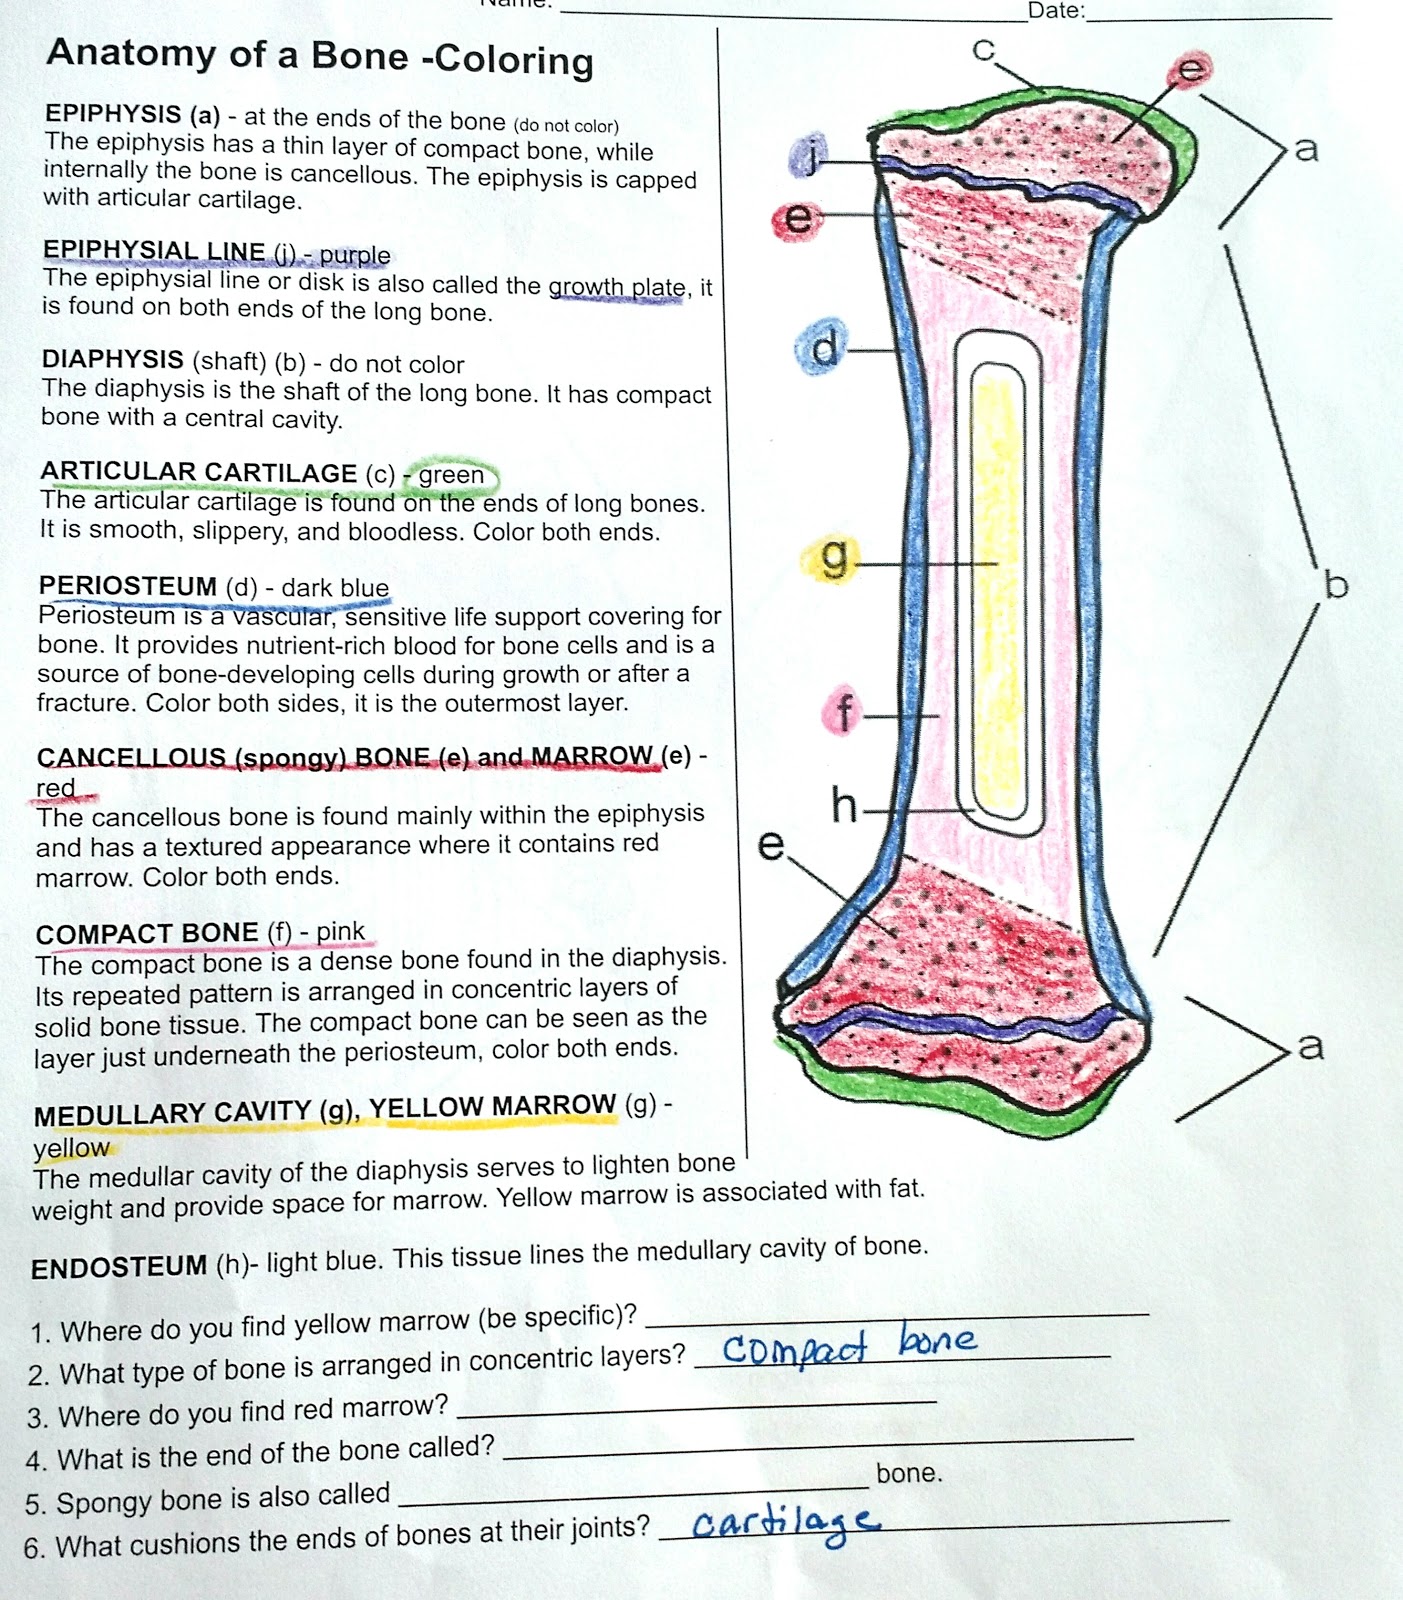 Name: Date:
Anatomy of a Bone -Coloring
EPIPHYSIS (a) - at the ends of the bone (do not color)
The epiphysis has a thin layer of compact bone, while
internally the bone is cancellous. The epiphysis is capped
with articular cartilage.
EPIPHYSIAL LINE (j) - purple
The epiphysial line or disk is also called the growth plate, it
is found on both ends of the long bone.
DIAPHYSIS (shaft) (b) - do not color
The diaphysis is the shaft of the long bone. It has compact
bone with a central cavity.
ARTICULAR CARTILAGE (c) - green
The articular cartilage is found on the ends of long bones.
It is smooth, slippery, and bloodless. Color both ends.
PERIOSTEUM (d) - dark blue
Periosteum is a vascular, sensitive life support covering for
bone. It provides nutrient-rich blood for bone cells and is a
source of bone-developing cells during growth or after a
fracture. Color both sides, it is the outermost layer.
CANCELLOUS (spongy) BONE (e) and MARROW (e) -
red
The cancellous bone is found mainly within the epiphysis
and has a textured appearance where it contains red
marrow. Color both ends.
COMPACT BONE (f) - pink
The compact bone is a dense bone found in the diaphysis.
Its repeated pattern is arranged in concentric layers of
solid bone tissue. The compact bone can be seen as the
layer just underneath the periosteum, color both ends.
MEDULLARY CAVITY (g), YELLOW MARROW (g) -
yellow
The medullar cavity of the diaphysis serves to lighten bone
weight and provide space for marrow. Yellow marrow is associated with fat.
ENDOSTEUM (h)- light blue. This tissue lines the medullary cavity of bone.
c
e
a
j
e
d
g
b
f
h
e
a
1. Where do you find yellow marrow (be specific)?
2. What type of bone is arranged in concentric layers? compact bone
3. Where do you find red marrow?
4. What is the end of the bone called?
5. Spongy bone is also called bone.
6. What cushions the ends of bones at their joints? cartilage